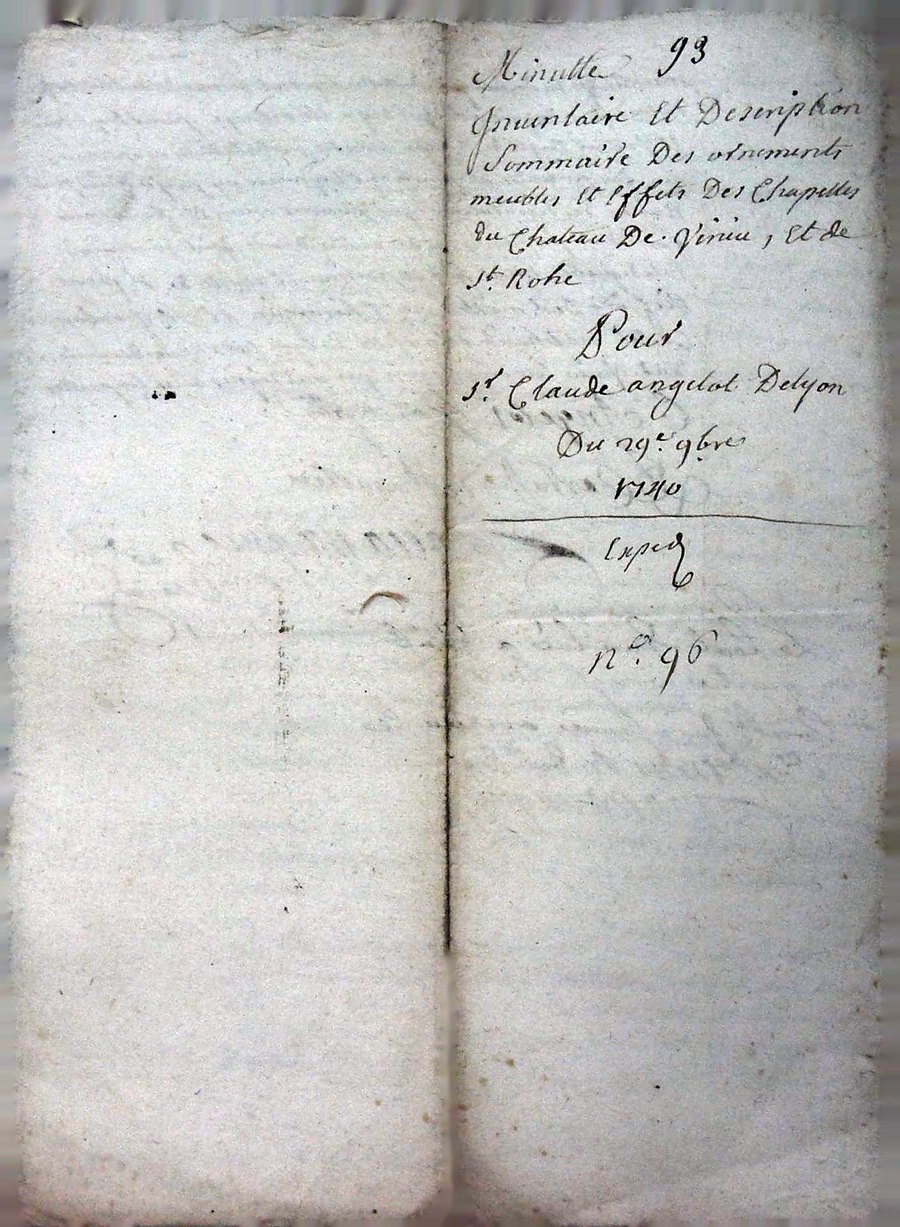 Minutte 93
Inventaire Et Description
Sommaire Des ornements
meubles Et Effets Des Chapelles
du Chateau De Virieu, Et de
St. Rohc
Pour
Sr. Claude angelot Delyon
Du 29e. 9bre
1740
Exped
no. 96